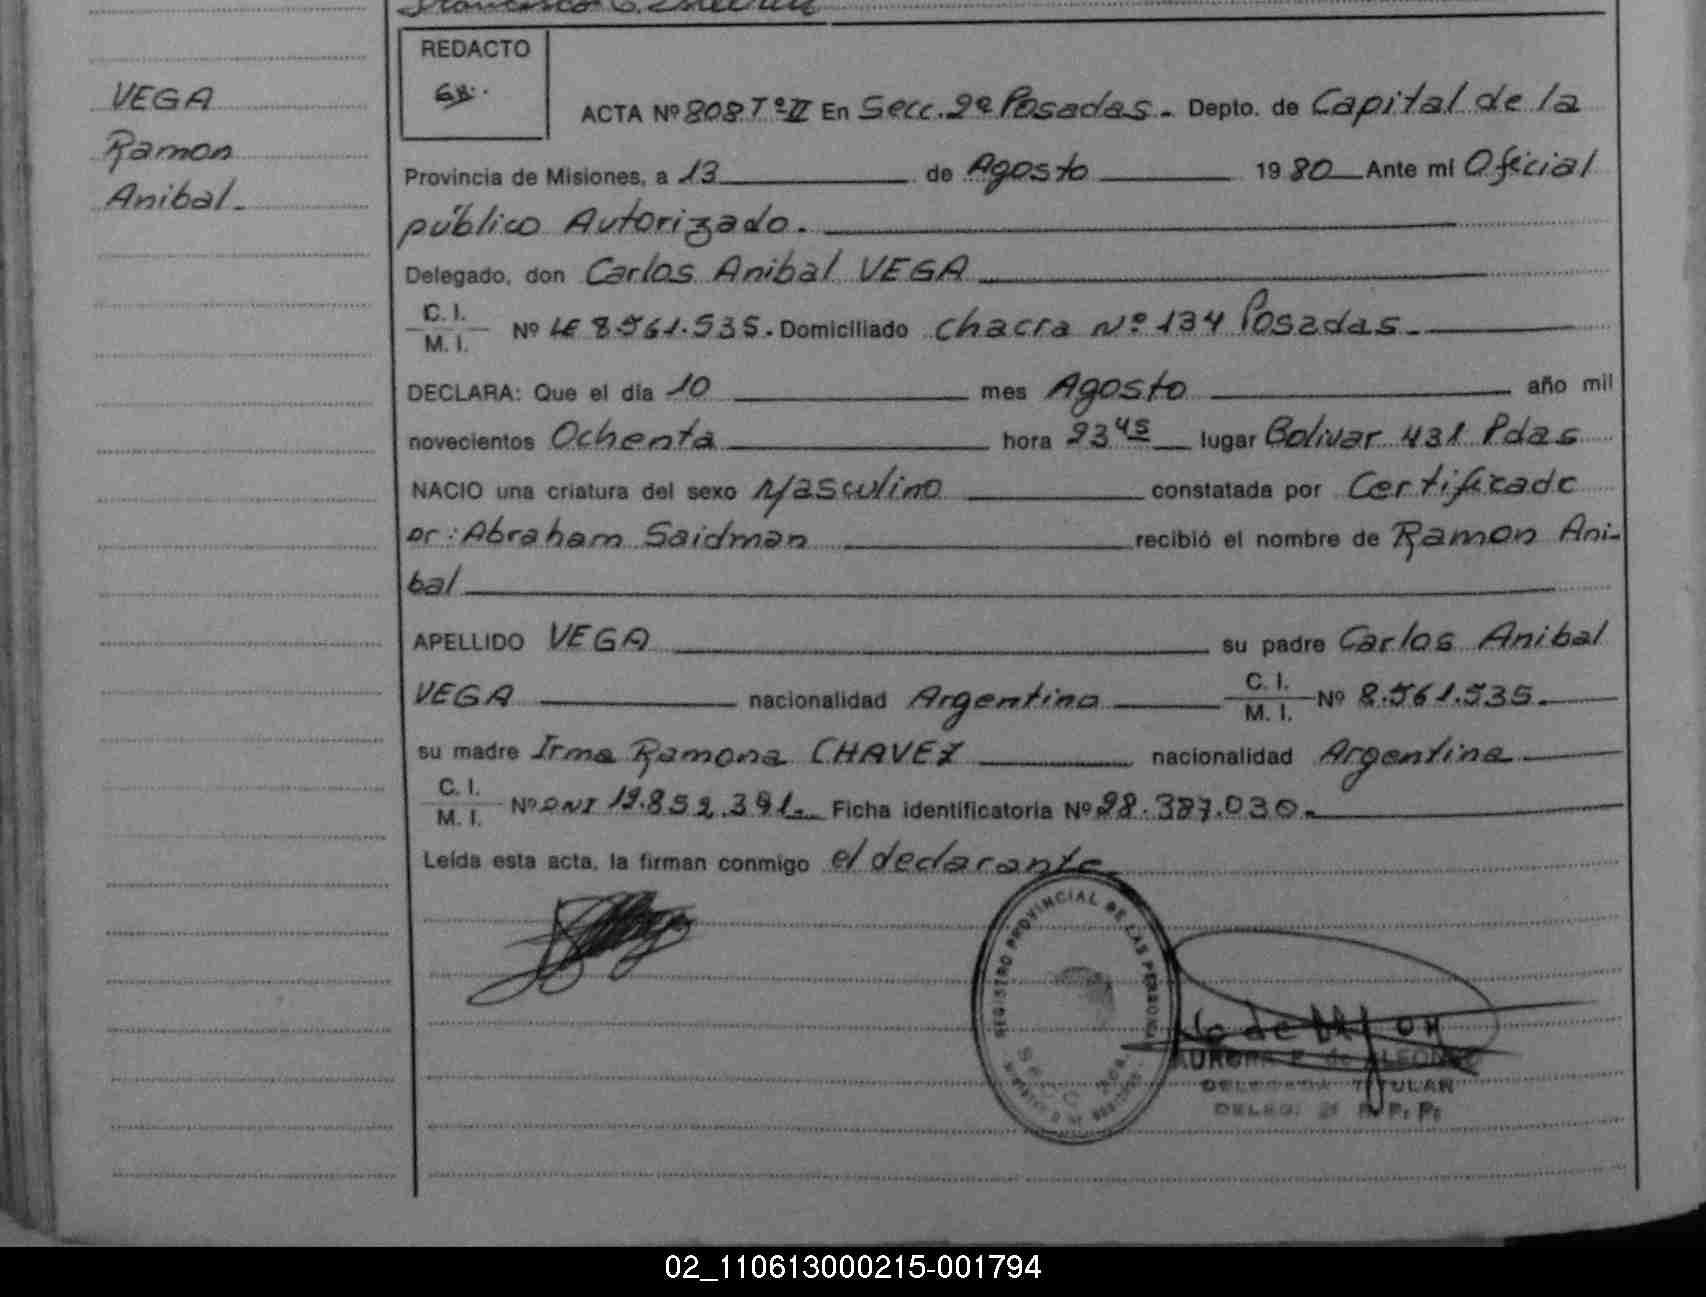 VEGA
Ramon
Anibal.
REDACTO
ACTA Nº 808 Tº II En Secc. 2ª Posadas. Depto. de Capital de la
Provincia de Misiones, a 13 de Agosto 1980 Ante mi Oficial
público Autorizado.
Delegado, don Carlos Anibal VEGA
C. I.
M. I. Nº LE 8.561.535. Domiciliado chacra Nº 134 Posadas.
DECLARA: Que el día 10 mes Agosto año mil
novecientos Ochenta hora 23 45 lugar Bolivar 431 Pdas
NACIO una criatura del sexo Masculino constatada por Certificado
Dr: Abraham Saidman recibió el nombre de Ramon Ani-
bal
APELLIDO VEGA su padre Carlos Anibal
VEGA nacionalidad Argentina C. I. M. I. Nº 8.561.535.
su madre Irma Ramona CHAVEZ nacionalidad Argentina
C. I.
M. I. Nº DNI 12.852.391. Ficha identificatoria Nº 28.387.030.
Leída esta acta, la firman conmigo el declarante
REGISTRO PROVINCIAL DE LAS PERSONAS
SECC
DELEGADA TITULAR
DELEG. 2ª R. P. P.
02_110613000215-001794